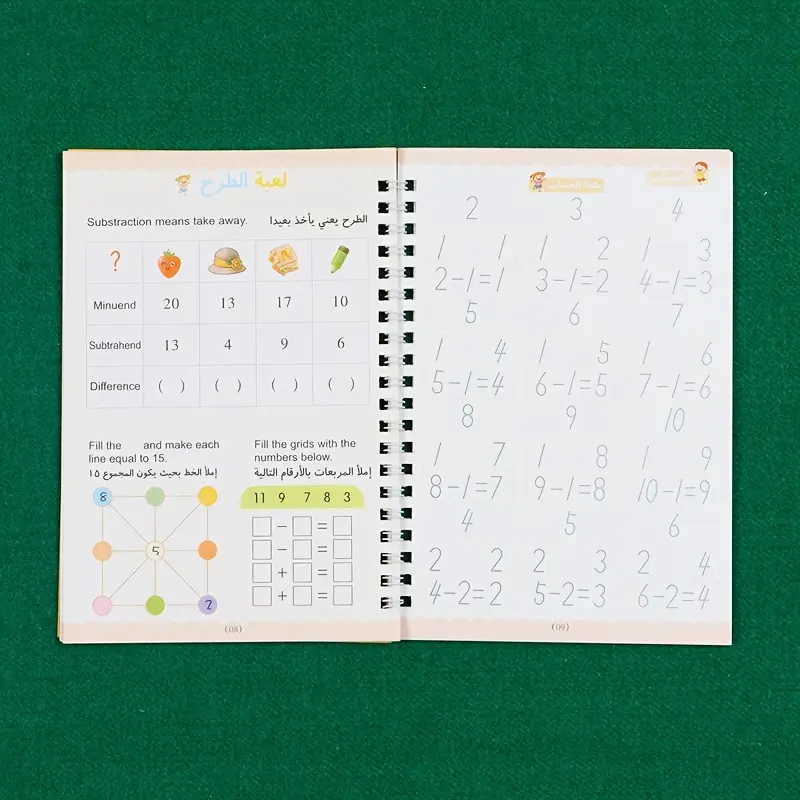 لعبة الطرح
Substraction means take away. الطرح يعني يأخذ بعيدا
?
Minuend 20 13 17 10
Subtrahend 13 4 9 6
Difference ( ) ( ) ( ) ( )
Fill the and make each
line equal to 15.
إملأ الخط بحيث يكون المجموع ١٥
8
5
2
Fill the grids with the
numbers below.
إملأ المربعات بالأرقام التالية
11 9 7 8 3
- =
- =
+ =
+ =
(08)
2 3 4
1 1 1 2 1 3
2-1=1 3-1=2 4-1=3
5 6 7
1 4 1 5 1 6
5-1=4 6-1=5 7-1=6
8 9 10
1 7 1 8 1 9
8-1=7 9-1=8 10-1=9
4 5 6
2 2 2 3 2 4
4-2=2 5-2=3 6-2=4
(09)